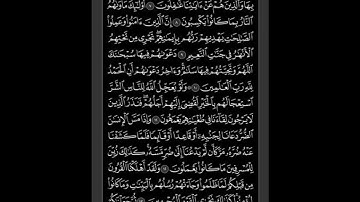 بِهَا وَٱلَّذِينَ هُمۡ عَنۡ ءَايَٰتِنَا غَٰفِلُونَ ٧ أُوْلَٰٓئِكَ مَأۡوَىٰهُمُ
ٱلنَّارُ بِمَا كَانُواْ يَكۡسِبُونَ ٨ إِنَّ ٱلَّذِينَ ءَامَنُواْ وَعَمِلُواْ
ٱلصَّٰلِحَٰتِ يَهۡدِيهِمۡ رَبُّهُم بِإِيمَٰنِهِمۡۖ تَجۡرِي مِن تَحۡتِهِمُ
ٱلۡأَنۡهَٰرُ فِي جَنَّٰتِ ٱلنَّعِيمِ ٩ دَعۡوَىٰهُمۡ فِيهَا سُبۡحَٰنَكَ
ٱللَّهُمَّ وَتَحِيَّتُهُمۡ فِيهَا سَلَٰمٞۚ وَءَاخِرُ دَعۡوَىٰهُمۡ أَنِ ٱلۡحَمۡدُ
لِلَّهِ رَبِّ ٱلۡعَٰلَمِينَ ١٠ ۞ وَلَوۡ يُعَجِّلُ ٱللَّهُ لِلنَّاسِ ٱلشَّرَّ
ٱسۡتِعۡجَالَهُم بِٱلۡخَيۡرِ لَقُضِيَ إِلَيۡهِمۡ أَجَلُهُمۡۖ فَنَذَرُ ٱلَّذِينَ
لَا يَرۡجُونَ لِقَآءَنَا فِي طُغۡيَٰنِهِمۡ يَعۡمَهُونَ ١١ وَإِذَا مَسَّ ٱلۡإِنسَٰنَ
ٱلضُّرُّ دَعَانَا لِجَنۢبِهِۦٓ أَوۡ قَاعِدًا أَوۡ قَآئِمٗا فَلَمَّا كَشَفۡنَا
عَنۡهُ ضُرَّهُۥ مَرَّ كَأَن لَّمۡ يَدۡعُنَآ إِلَىٰ ضُرّٖ مَّسَّهُۥۚ كَذَٰلِكَ زُيِّنَ
لِلۡمُسۡرِفِينَ مَا كَانُواْ يَعۡمَلُونَ ١٢ وَلَقَدۡ أَهۡلَكۡنَا ٱلۡقُرُونَ
مِن قَبۡلِكُمۡ لَمَّا ظَلَمُواْ وَجَآءَتۡهُمۡ رُسُلُهُم بِٱلۡبَيِّنَٰتِ وَمَا كَانُواْ